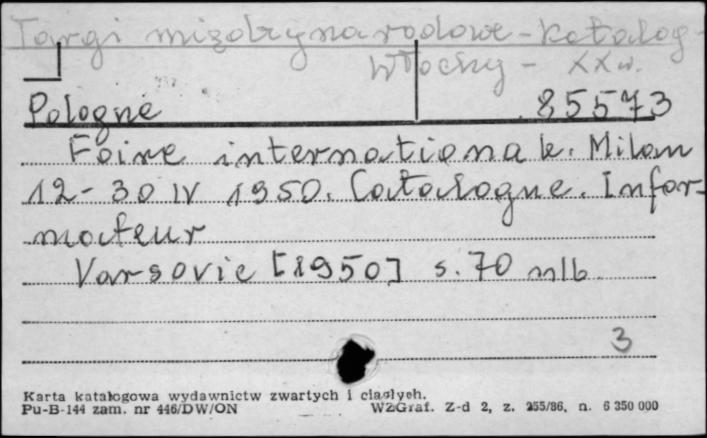 Targi międzynarodowe - katalog -
Włochy - XX w.
Pologne 85573
Foire internationale. Milan
12-30 IV 1950. Catalogue. Infor-
mateur
Varsovie [1950] s. 70 nlb.
3
Karta katalogowa wydawnictw zwartych i ciągłych.
Pu-B-144 zam. nr 446/DW/ON WZGraf. Z-d 2, z. 255/86, n. 6 350 000